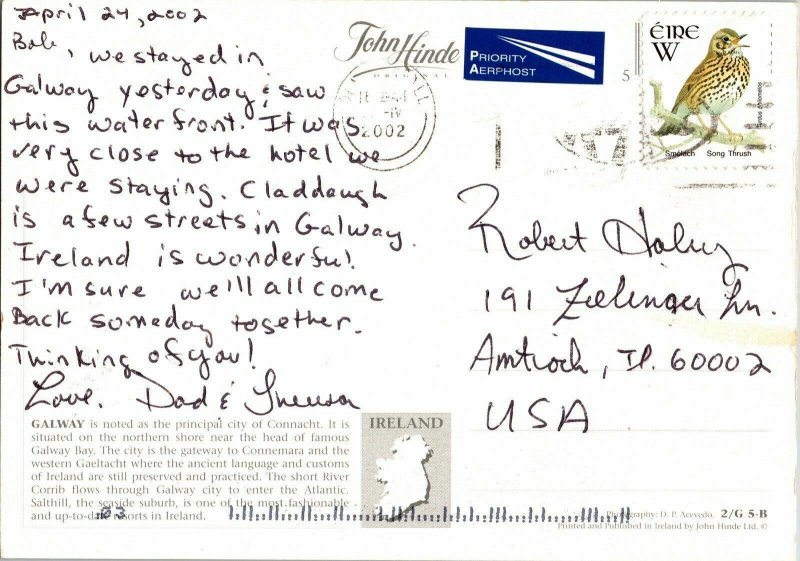 April 24, 2002
Bob, we stayed in
Galway yesterday & saw
this waterfront. It was
very close to the hotel we
were staying. Claddaugh
is a few streets in Galway.
Ireland is wonderful.
I'm sure we'll all come
Back someday together.
Thinking of you!
Love, Dad &
John Hinde
ORIGINAL
PRIORITY
AERPHOST
5
2002
ÉIRE
W
Turdus philomelos
Smólach Song Thrush
Robert
191 Ln.
Antioch, 60002
USA
GALWAY is noted as the principal city of Connacht. It is
situated on the northern shore near the head of famous
Galway Bay. The city is the gateway to Connemara and the
western Gaeltacht where the ancient language and customs
of Ireland are still preserved and practiced. The short River
Corrib flows through Galway city to enter the Atlantic.
Salthill, the seaside suburb, is one of the most fashionable
and up-to-date resorts in Ireland.
IRELAND
Photography: D. P. Acevedo. 2/G 5-B
Printed and Published in Ireland by John Hinde Ltd. ©